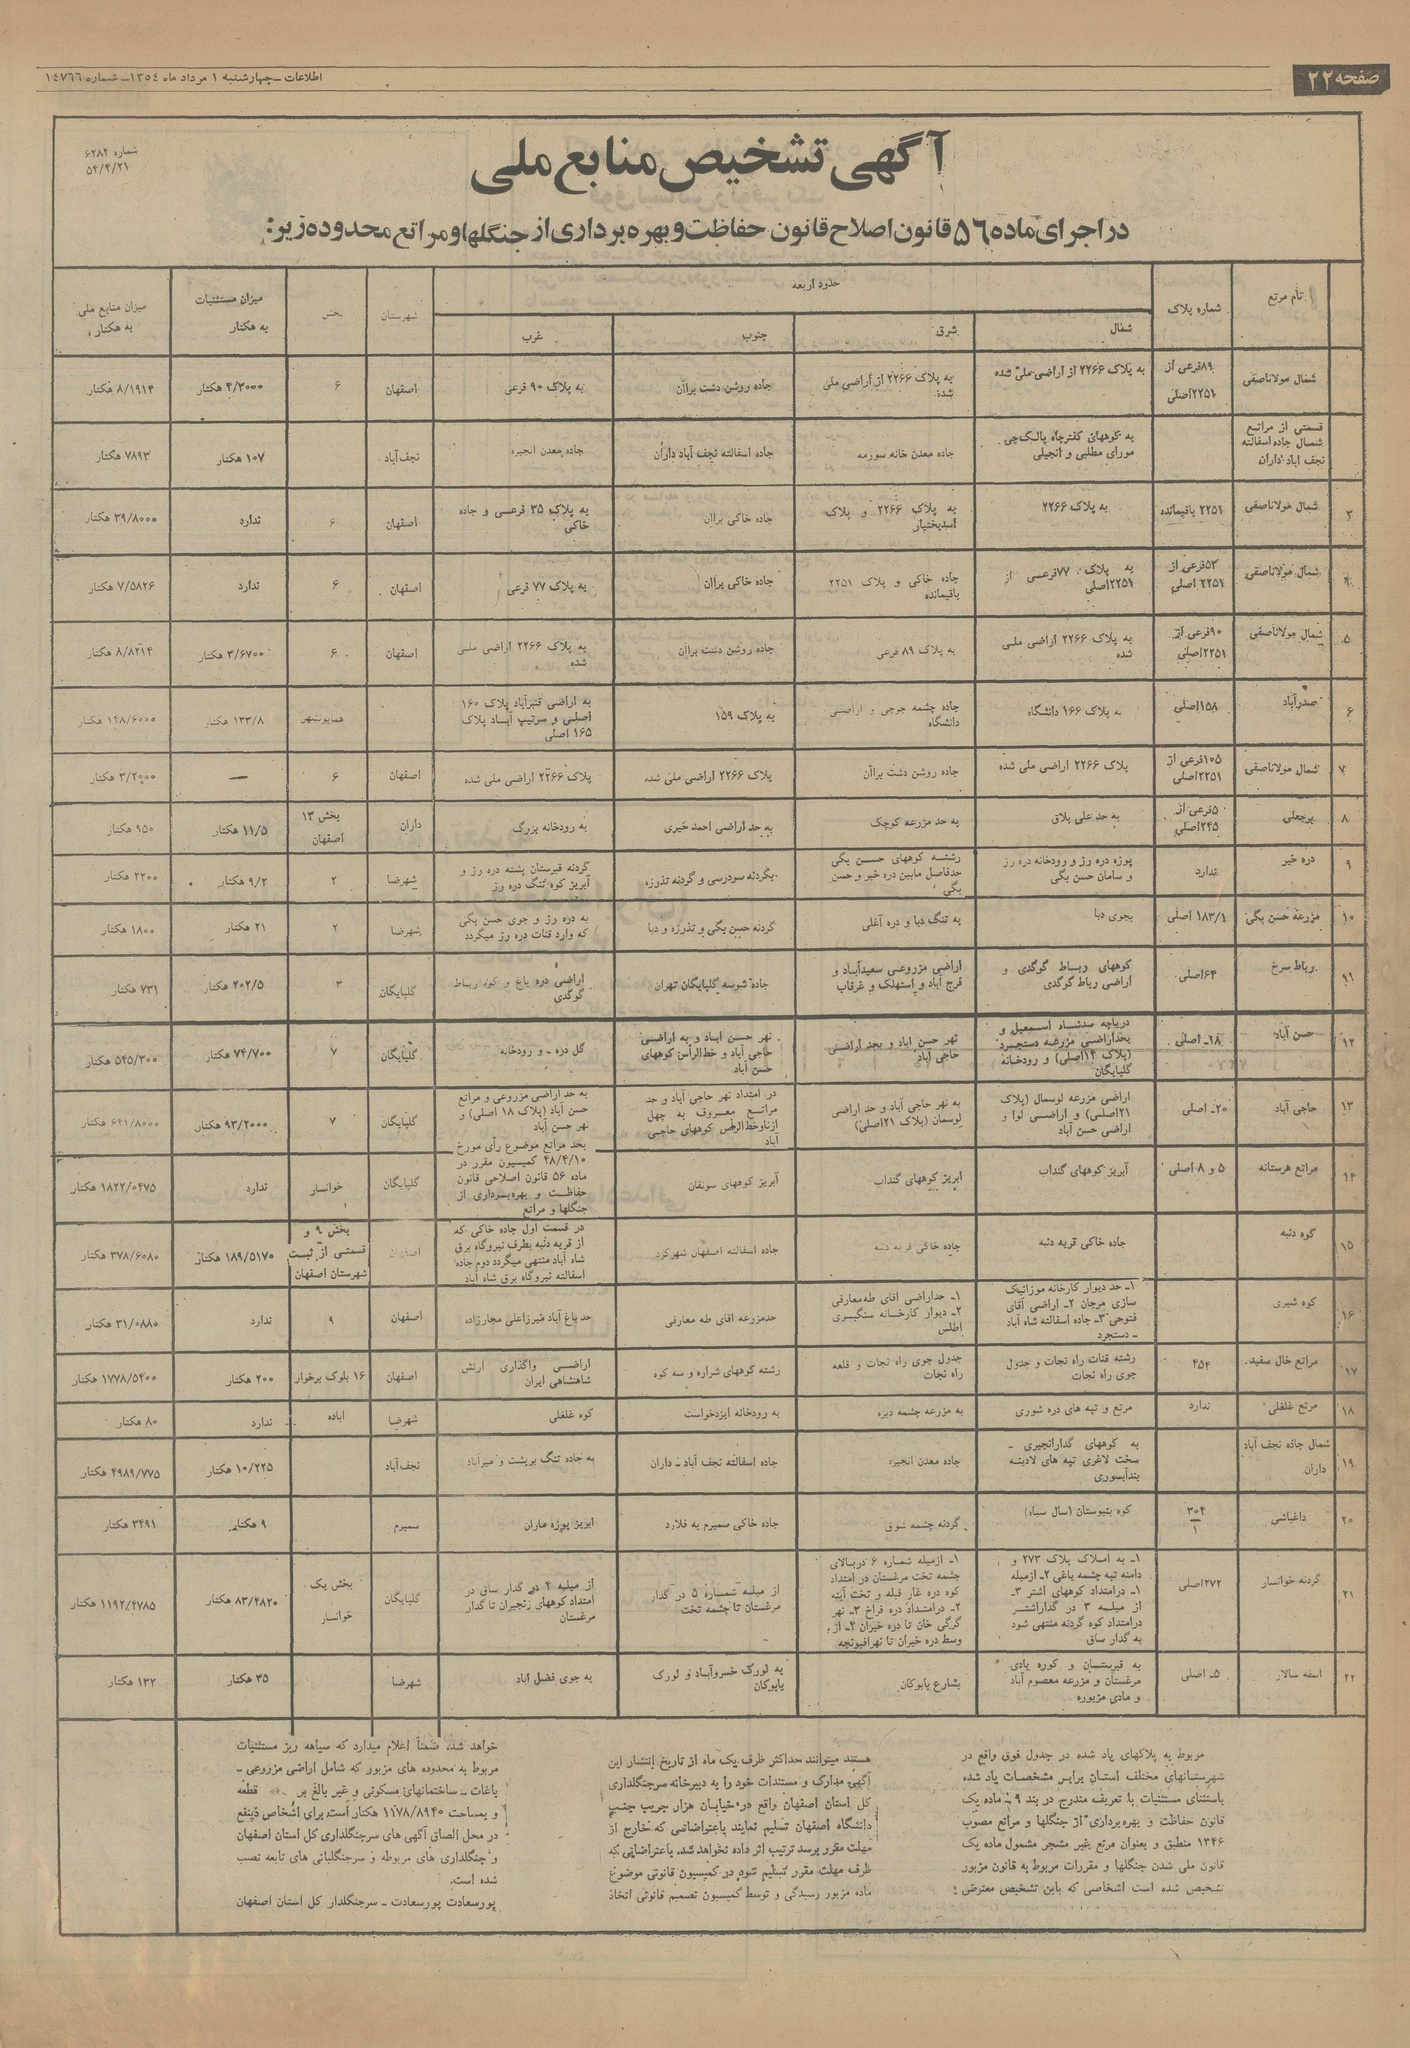 صفحه ۲۲
اطلاعات ـ چهارشنبه ۱ مرداد ماه ۱۳۵۴ ـ شماره ۱۴۷۶۶
شماره ۶۲۸۴
۵۴/۴/۲۱
آگهی تشخیص منابع ملی
در اجرای ماده ۵۶ قانون اصلاح قانون حفاظت و بهره برداری از جنگلها و مراتع محدوده زیر:
نام مرتع شماره پلاک حدود اربعه شهرستان بخش میزان مستثنیات به هکتار میزان منابع ملی به هکتار
شمال شرق جنوب غرب
شمال مولاناصفی ۸۹فرعی از ۲۲۵۱اصلی به پلاک ۲۲۶۶ از اراضی ملی شده به پلاک ۲۲۶۶ از اراضی ملی شده جاده روشن دشت براآن به پلاک ۹۰ فرعی اصفهان ۶ ۴/۳۰۰۰ هکتار ۸/۱۹۱۴ هکتار
قسمتی از مراتع شمال جاده اسفالته نجف آباد داران به کوههای کفترچاه پالک‌چی مورای مطلبی و انجیلی جاده معدن خانه سورمه جاده اسفالته نجف آباد داران جاده معدن انجیره نجف‌آباد ۱۰۷ هکتار ۷۸۹۳ هکتار
۳ شمال مولاناصفی ۲۲۵۱ باقیمانده به پلاک ۲۲۶۶ به پلاک ۲۲۶۶ و پلاک اسدبختیار جاده خاکی براآن به پلاک ۳۵ فرعی و جاده خاکی اصفهان ۶ ندارد ۳۹/۸۰۰۰ هکتار
۴ شمال مولاناصفی ۵۳فرعی از ۲۲۵۱ اصلی به پلاک ۷۷فرعی از ۲۲۵۱اصلی جاده خاکی و پلاک ۲۲۵۱ باقیمانده جاده خاکی براآن به پلاک ۷۷ فرعی اصفهان ۶ ندارد ۷/۵۸۲۶ هکتار
۵ شمال مولاناصفی ۹۰فرعی از ۲۲۵۱اصلی به پلاک ۲۲۶۶ اراضی ملی شده به پلاک ۸۹ فرعی جاده روشن دشت براآن به پلاک ۲۲۶۶ اراضی ملی شده اصفهان ۶ ۳/۶۷۰۰ هکتار ۸/۸۲۱۴ هکتار
۶ صدرآباد ۱۵۸اصلی به پلاک ۱۶۶ دانشگاه جاده چشمه جوجی و اراضی دانشگاه به پلاک ۱۵۹ به اراضی قنبرآباد پلاک ۱۶۰ اصلی و سرتیپ آباد پلاک ۱۶۵ اصلی همایونشهر ۱۳۳/۸ هکتار ۱۴۸/۶۰۰۰ هکتار
۷ شمال مولاناصفی ۱۰۵فرعی از ۲۲۵۱اصلی پلاک ۲۲۶۶ اراضی ملی شده جاده روشن دشت براآن پلاک ۲۲۶۶ اراضی ملی شده پلاک ۲۲۶۶ اراضی ملی شده اصفهان ۶ — ۳/۲۰۰۰ هکتار
۸ پرچعلی ۵فرعی از ۲۴۵اصلی به حد علی بلاق به حد مزرعه کوچک به حد اراضی احمد خیری به رودخانه بزرگ داران بخش ۱۳ اصفهان ۱۱/۵ هکتار ۹۵۰ هکتار
۹ دره خیر ندارد پوزه دره رز و رودخانه دره رز و سامان حسن بگی رشته کوههای حسن بگی حدفاصل مابین دره خیر و حسن بگی بگردنه سودرسی و گردنه تذرزه گردنه قبرستان پشته دره رز و آبریز کوه تنگ دره رز شهرضا ۲ ۹/۲ هکتار ۲۲۰۰ هکتار
۱۰ مزرعه حسن بگی ۱۸۳/۱ اصلی بجوی دبا به تنگ دبا و دره آغلی گردنه حسن بگی و تذرزه و دبا به دره رز و جوی حسن بگی که وارد قنات دره رز میگردد شهرضا ۲ ۲۱ هکتار ۱۸۰۰ هکتار
۱۱ رباط سرخ ۶۴اصلی کوههای رباط گوگدی و اراضی رباط گوگدی اراضی مزروعی سعیدآباد و فرج آباد و استهلک و غرقاب جاده شوسه گلپایگان تهران اراضی دره باغ و کوه رباط گوگدی گلپایگان ۳ ۲۰۲/۵ هکتار ۷۳۱ هکتار
۱۲ حسن آباد ۲۸ـ اصلی دریاچه سدشاه اسمعیل و بحداراضی مزرعه دستجرد (پلاک ۱۴اصلی) و رودخانه گلپایگان نهر حسن آباد و بحد اراضی حاجی آباد نهر حسن آباد و به اراضی حاجی آباد و خط‌الرأس کوههای حسن آباد گل دره ـ و رودخانه گلپایگان ۷ ۷۴/۷۰۰ هکتار ۵۴۵/۳۰۰ هکتار
۱۳ حاجی آباد ۲۰ـ اصلی اراضی مزرعه لوسمال (پلاک ۲۱اصلی) و اراضی لوا و اراضی حسن آباد به نهر حاجی آباد و حد اراضی لوسمان (پلاک ۲۱اصلی) در امتداد نهر حاجی آباد و حد مراتع معروف به چهل ازناوخط‌الراس کوههای حاجی آباد به حد اراضی مزروعی و مراتع حسن آباد (پلاک ۱۸ اصلی) و نهر حسن آباد گلپایگان ۷ ۹۳/۲۰۰۰ هکتار ۶۴۱/۸۰۰۰ هکتار
۱۴ مراتع هرستانه ۵ و ۸ اصلی آبریز کوههای گنداب آبریز کوههای گنداب آبریز کوههای سونقان بحد مراتع موضوع رأی مورخ ۴۸/۴/۱۰ کمیسیون مقرر در ماده ۵۶ قانون اصلاحی قانون حفاظت و بهره‌برداری از جنگلها و مراتع گلپایگان خوانسار ندارد ۱۸۲۲/۰۴۷۵ هکتار
۱۵ کوه دنبه جاده خاکی قریه دنبه جاده خاکی قریه دنبه جاده اسفالته اصفهان شهرکرد در قسمت اول جاده خاکی که از قریه دنبه بطرف نیروگاه برق شاه آباد منتهی میگردد دوم جاده اسفالته نیروگاه برق شاه آباد اصفهان بخش ۹ و قسمتی از ثبت شهرستان اصفهان ۱۸۹/۵۱۷۰ هکتار ۳۷۸/۶۰۸۰ هکتار
۱۶ کوه شیری ۱ـ حد دیوار کارخانه موزائیک سازی مرجان ۲ـ اراضی آقای فتوحی ۳ـ جاده اسفالته شاه آباد ـ دستجرد ۱ـ حداراضی آقای طه‌معارفی ۲ـ دیوار کارخانه سنگبری اطلس حدمزرعه آقای طه معارفی حد باغ آباد میرزاعلی مجارزاده اصفهان ۹ ندارد ۳۱/۰۸۸۰ هکتار
۱۷ مراتع خال سفید ۴۵۴ رشته قنات راه نجات و جدول جوی راه نجات جدول جوی راه نجات و قلعه راه نجات رشته کوههای شراره و سه کوه اراضی واگذاری ارتش شاهنشاهی ایران اصفهان ۱۶ بلوک برخوار ۲۰۰ هکتار ۱۷۷۸/۵۴۰۰ هکتار
۱۸ مرتع غلغلی ندارد مرتع و تپه های دره شوری به مزرعه چشمه دیزه به رودخانه ایزدخواست کوه غلغلی شهرضا آباده ندارد ۸۰ هکتار
۱۹ شمال جاده نجف آباد داران به کوههای گدارانجیری ـ سخت لاغری تپه های لادینه بندآبسوری جاده معدن انجیره جاده اسفالته نجف آباد ـ داران به جاده تنگ بریشت و میرآباد نجف‌آباد ۱۰/۲۲۵ هکتار ۴۹۸۹/۷۷۵ هکتار
۲۰ داغباشی ۳۰۴/۱ کوه بنیوستان (سال سیاه) گردنه چشمه شوق جاده خاکی سمیرم به فلارد آبریز پوزه ماران سمیرم ۹ هکتار ۳۴۹۱ هکتار
۲۱ گردنه خوانسار ۲۷۲اصلی ۱ـ به املاک پلاک ۲۷۳ و دامنه تپه چشمه یاغی ۲ـ ازمیله ۱ـ درامتداد کوههای اشتر ۳ـ از میله ۳ در گداراشتر درامتداد کوه گردنه منتهی شود به گدار ساق ۱ـ ازمیله شماره ۶ دربالای چشمه تخت مرغستان در امتداد کوه دره غاز قبله و تخت آینه ۲ـ درامتداد دره فراخ ۳ـ نهر گرگی خان تا دره خیران ۴ـ از وسط دره خیران تا نهرافیونچه از میله شماره ۵ در گدار مرغستان تا چشمه تخت از میله ۴ در گدار ساق در امتداد کوههای زنجیران تا گدار مرغستان گلپایگان بخش یک خوانسار ۸۳/۴۸۲۰ هکتار ۱۱۹۲/۴۷۸۵ هکتار
۲۲ اسفه سالار ۵ـ اصلی به قبرستان و کوره بادی مرغستان و مزرعه معصوم آباد و مادی مزبوره بشارع بابوکان به لورک خسروآباد و لورک بابوکان به جوی فضل آباد شهرضا ۳۵ هکتار ۱۳۲ هکتار
مربوط به پلاکهای یاد شده در جدول فوق واقع در
شهرستانهای مختلف استان برابر مشخصات یاد شده
باستثنای مستثنیات با تعریف مندرج در بند ۹ ماده یک
قانون حفاظت و بهره‌برداری از جنگلها و مراتع مصوب
۱۳۴۶ منطبق و بعنوان مرتع غیر مشجر مشمول ماده یک
قانون ملی شدن جنگلها و مقررات مربوط به قانون مزبور
تشخیص شده است اشخاصی که باین تشخیص معترض
هستند میتوانند حداکثر ظرف یک ماه از تاریخ انتشار این
آگهی مدارک و مستندات خود را به دبیرخانه سرجنگلداری
کل استان اصفهان واقع در خیابان هزار جریب جنب
دانشگاه اصفهان تسلیم نمایند باعتراضاتی که خارج از
مهلت مقرر برسد ترتیب اثر داده نخواهد شد، باعتراضاتی که
ظرف مهلت مقرر تسلیم شود در کمیسیون قانونی موضوع
ماده مزبور رسیدگی و توسط کمیسیون تصمیم قانونی اتخاذ
خواهد شد. ضمناً اعلام میدارد که سیاهه ریز مستثنیات
مربوط به محدوده های مزبور که شامل اراضی مزروعی ـ
باغات ـ ساختمانهای مسکونی و غیر بالغ بر قطعه
و بمساحت ۱۱۷۸/۸۹۴۰ هکتار است برای اشخاص ذینفع
در محل الصاق آگهی های سرجنگلداری کل استان اصفهان
و جنگلداری های مربوطه و سرجنگلبانی های تابعه نصب
شده است.
پورسعادت پورسعادت ـ سرجنگلدار کل استان اصفهان